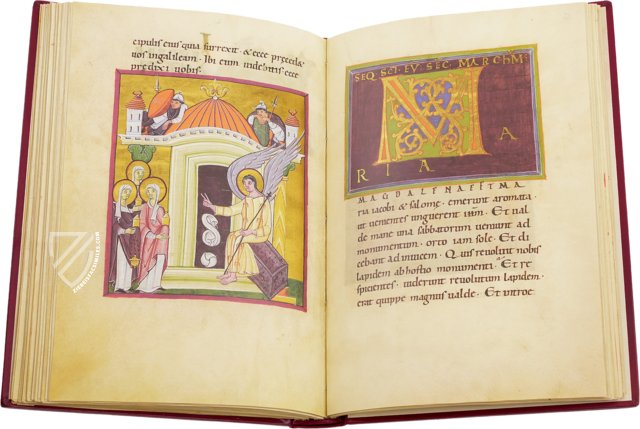 cipulis eius quia surrexit · & ecce præcedæ
vos ingalileam · Ibi eum videbitis ecce
prędixi vobis ·
ZIEREISFACSIMILES.COM
SEQ SCI EV SEC MARCHM
M
A
R I A
MAGDALENAETMA
ria iacobi & salome · emerunt aromata
ut venientes unguerent ihm · Et val
de mane una sabbatorum veniunt ad
monumentum · orto iam sole · Et di
cebant ad invicem · Quis revolvet nobis
lapidem ab hostio monumenti · Et re
spicientes · viderunt revolutum lapidem ·
erat quippe magnus valde · Et introe